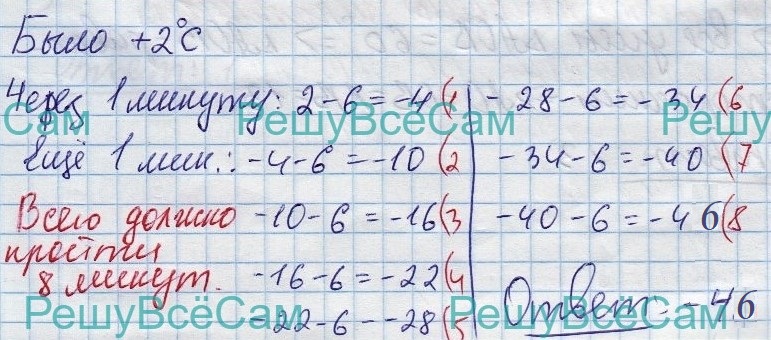 Было +2°C
Через 1 минуту: 2-6=-4(1
Ещё 1 мин.: -4-6=-10(2
Всего должно -10-6=-16(3
пройти
8 минут. -16-6=-22(4
-22-6--28(5
-28-6=-34(6
-34-6=-40(7
-40-6=-46(8
Ответ: -46
Сам РешуВсёСам Решу
РешуВсёСам РешуВсёСам